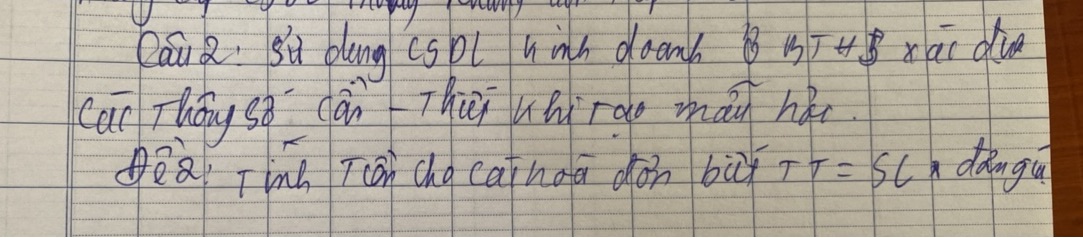 Câu 2: Sử dụng CSDL kinh doanh ở BTH5 xác định
các thông số cần thiết khi tạo mẫu hỏi.
Đề 2: Tính tiền cho các hoá đơn biết TT = SL x đơn giá